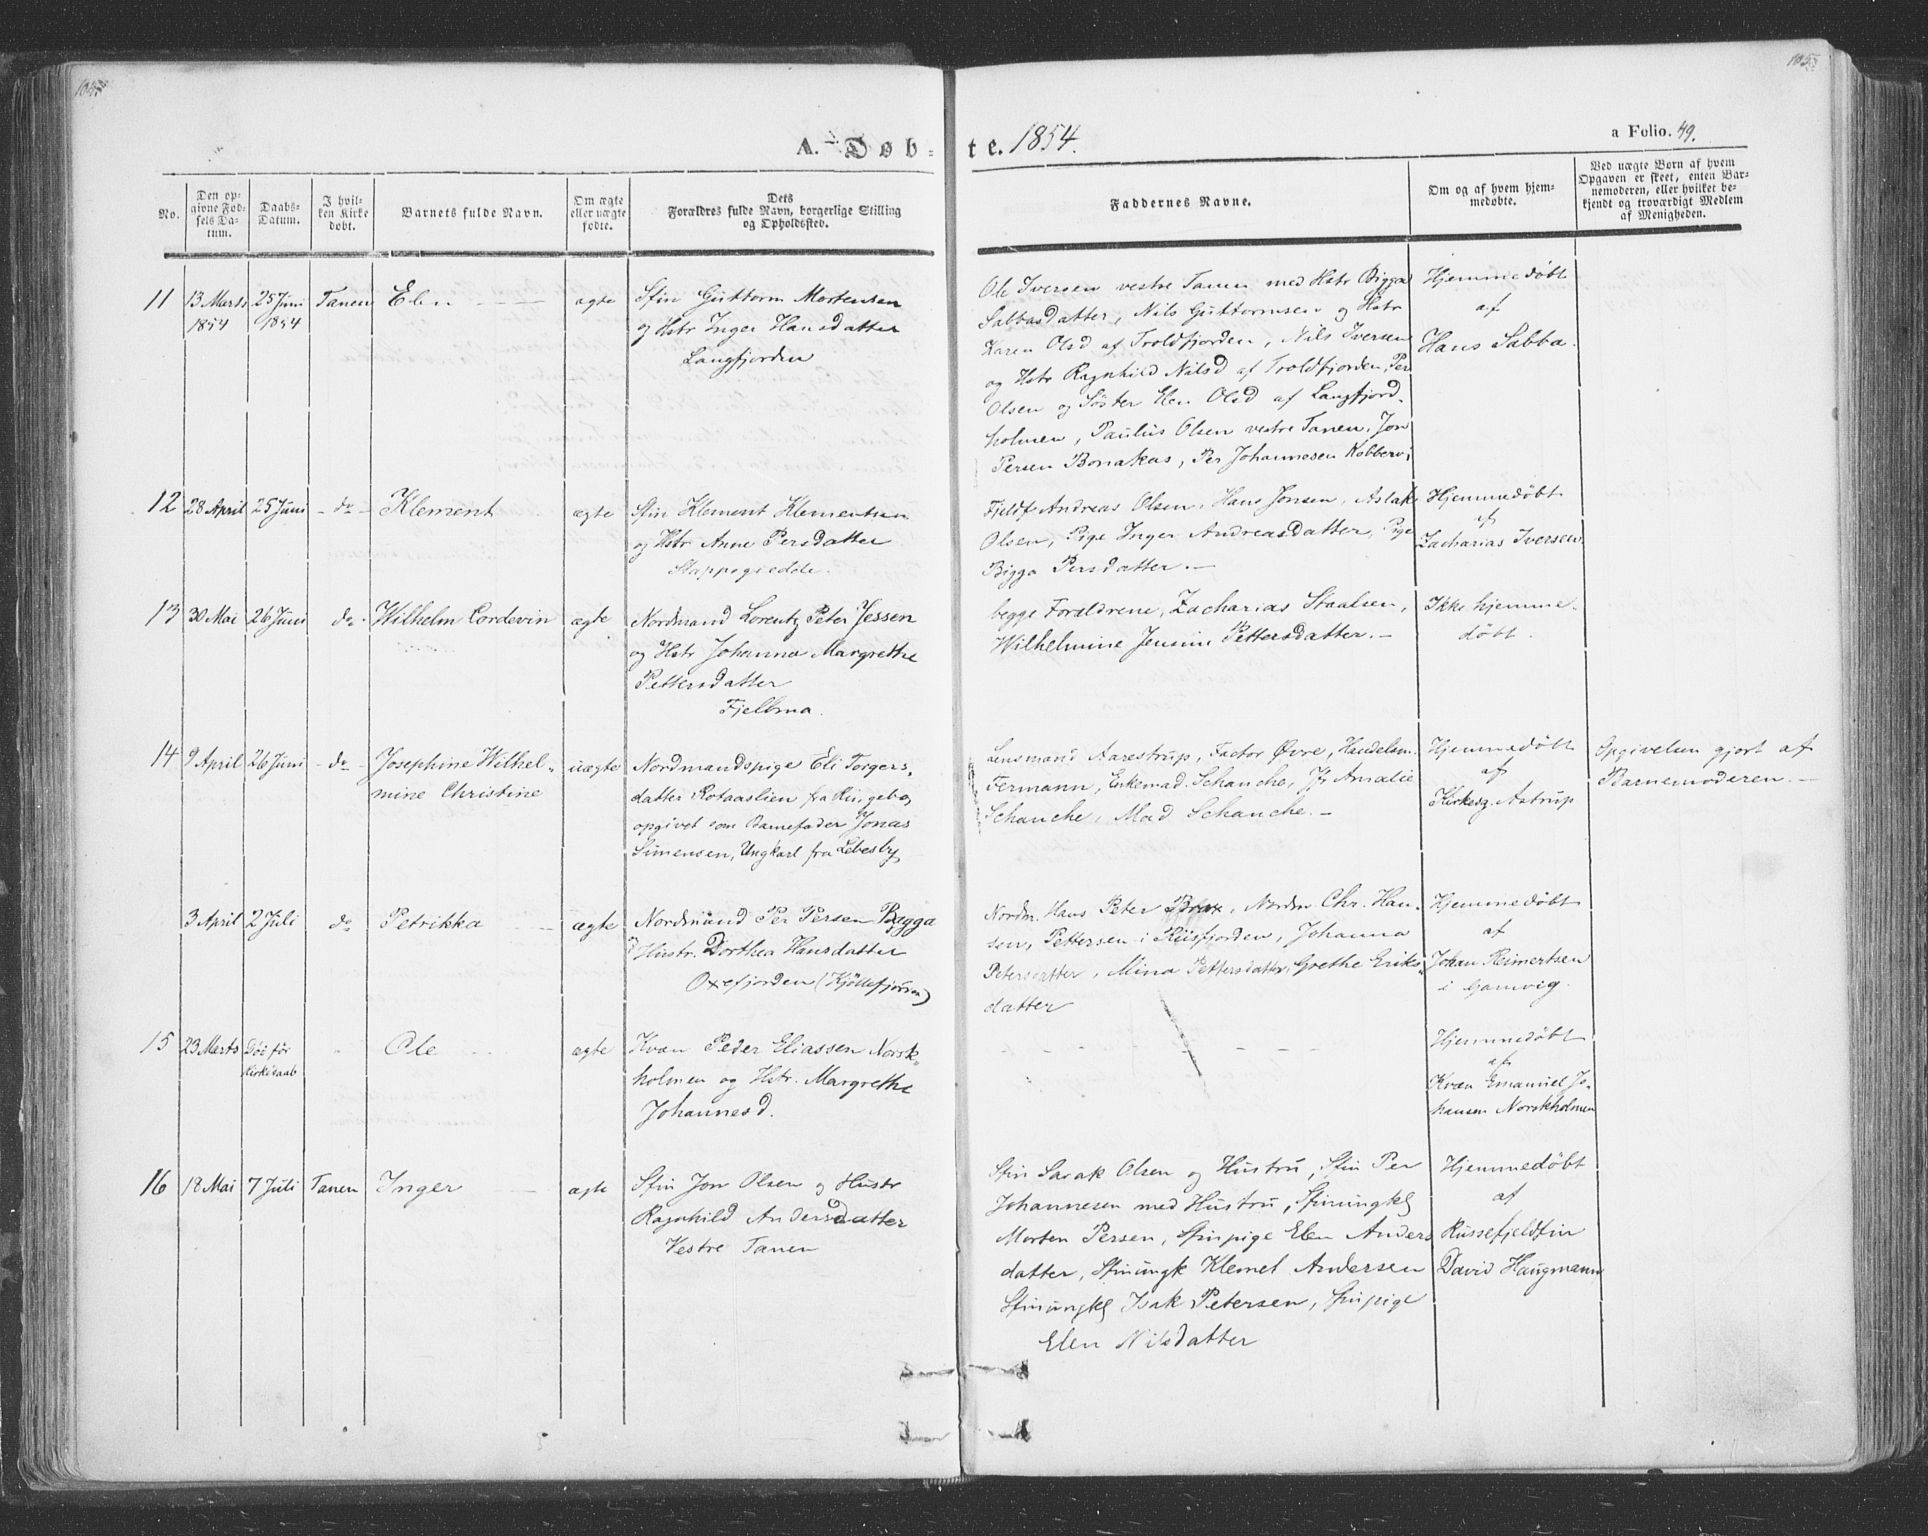 105
A. Døbte. 1854.
a Folio. 49.
No.
Den opgivne Fødsels Datum.
Daabs-Datum.
I hvilken Kirke døbt.
Barnets fulde Navn.
Om ægte eller uægte fødte.
Dets Forældres fulde Navn, borgerlige Stilling og Opholdssted.
Faddernes Navne.
Om og af hvem hjemmedøbte.
Ved uægte Børn af hvem Opgaven er skeet, enten Barnemoderen, eller hvilket bekjendt og troværdigt Medlem af Menigheden.
11 13 Marts 1854
25 Juni 1854
Tanen
Elen
ægte
Sfin Guttorm Mortensen
og Hstr Inger Hansdatter
Langfjorden
Ole Iversen vestre Tanen med Hstr Bigga
Sabbasdatter, Nils Guttormsen og Hstr
Karen Olsd af Troldfjorden, Nils Iversen
og Hstr Ragnhild Nilsd af Troldfjorden, Per
Olsen og Søster Elen Olsd af Langfjord-
holmen, Paulus Olsen vestre Tanen, Jon
Persen Bonakas, Per Johannesen Kobberv.
Hjemmedøbt
af
Hans Sabba.
12 28 April 25 Juni - do - Klement ægte
Sfin Klement Klementsen
og Hstr Anne Persdatter
Stappogiedde.
Fjeldf. Andreas Olsen, Hans Jonsen, Aslak
Olsen, Pige Inger Andreasdatter, Pige
Bigga Persdatter. -
Hjemmedøbt
af
Zacharias Iversen
13 30 Mai 26 Juni do. Wilhelm Cordevin ægte
Nordmand Lorentz Peter Jessen
og Hstr Johanna Margrethe
Pettersdatter
Fjelbma.
begge Forældrene, Zacharias Staalsen,
Wilhelmine Jensine Pettersdatter. -
Ikke hjemme-
døbt.
14 9 April 26 Juni - do - Josephine Wilhel-
mine Christine
uægte
Nordmandspige Eli Torgers-
datter Rotaaslien fra Ringebo,
opgivet som Barnefader Jonas
Simensen, Ungkarl fra Lebesby
Lensmand Aarestrup, Factor Øvre, Handelsm.
Fermann, Enkemad. Schanche, Jfr Amalie
Schanche, Mad Schanche. -
Hjemmedøbt
af
Kirkesg. Astrup
Opgivelsen gjort af
Barnemoderen. -
3 April 2 Juli do Petrikka ægte
Nordmand Per Persen Bagga
Hustr. Dorthea Hansdatter
Oxefjorden (Kjøllefjorden)
Nordm. Hans Peter Brox, Nordm. Chr. Han-
sen, Pettersen i Kiisfjorden, Johanna
Petersdatter, Mina Pettersdatter, Grethe Eriks-
datter
Hjemmedøbt
af
Johan Reimertsen
i Gamvig.
15 23 Marts Død før
Kirkedaab
Ole
ægte
Kvæn Peder Eliassen Norsk-
holmen og Hstr. Margrethe
Johannesd.
Hjemmedøbt
af
Kvæn Emanuel Jo-
hansen Norskholmen
16 18 Mai 7 Juli Tanen Inger ægte
Sfin Jon Olsen og Hustr
Ragnhild Andersdatter
Vestre Tanen
Sfin Sarak Olsen og Hustru, Sfin Per
Johannesen med Hustru, Sfinungkl
Morten Persen, Sfinpige Elen Anders
datter, Sfinungk Klemet Andersen
Sfinungkl Isak Petersen, Sfinpige
Elen Nilsdatter
Hjemmedøbt
af
Russefjeldfin
David Haugmann